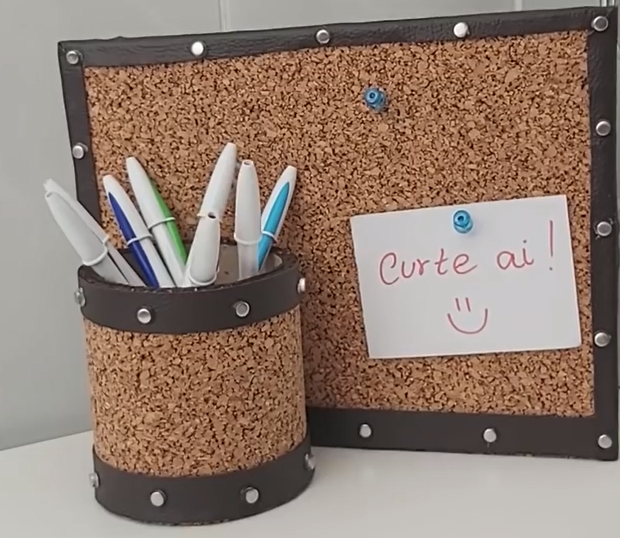 Curte ai!